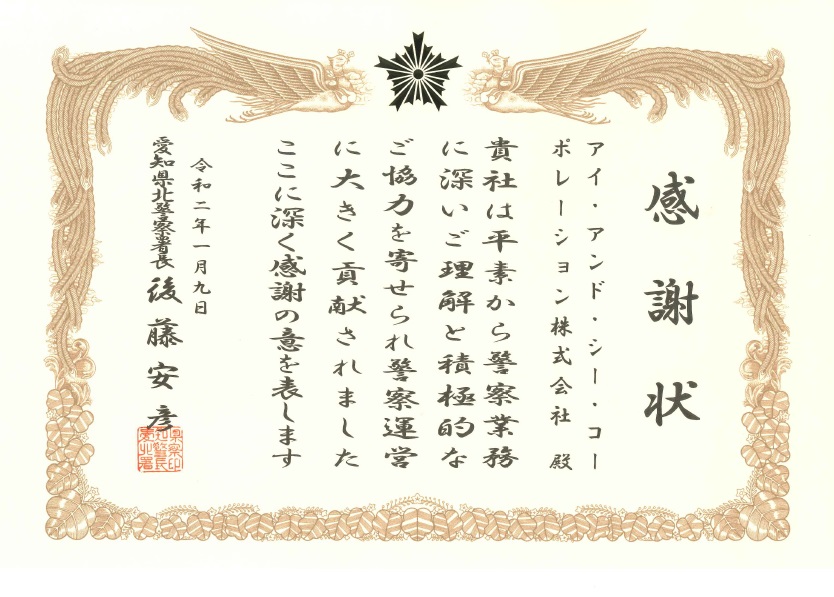 感謝状
アイ・アンド・シー・コー
ポレーション株式会社 殿
貴社は平素から警察業務
に深いご理解と積極的な
ご協力を寄せられ警察運営
に大きく貢献されました
ここに深く感謝の意を表します
令和二年一月九日
愛知県北警察署長 後藤安彦